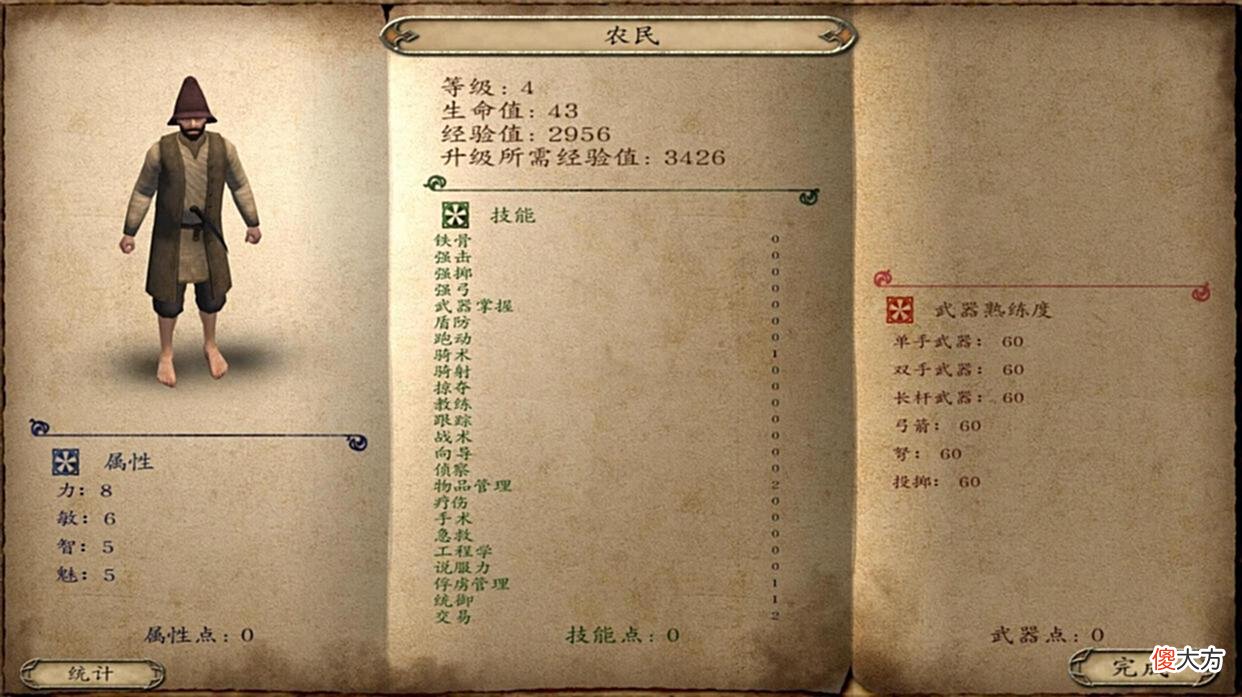 农民
等级：4
生命值：43
经验值：2956
升级所需经验值：3426
技能
铁骨 0
强击 0
强掷 0
强弓 0
武器掌握 0
盾防 0
跑动 0
骑术 1
骑射 0
掠夺 0
教练 0
跟踪 0
战术 0
向导 0
侦察 0
物品管理 2
疗伤 0
手术 0
急救 0
工程学 0
说服力 0
俘虏管理 1
统御 1
交易 2
技能点：0
属性
力：8
敏：6
智：5
魅：5
属性点：0
统计
武器熟练度
单手武器：60
双手武器：60
长杆武器：60
弓箭：60
弩：60
投掷：60
武器点：0
完成
傻大方